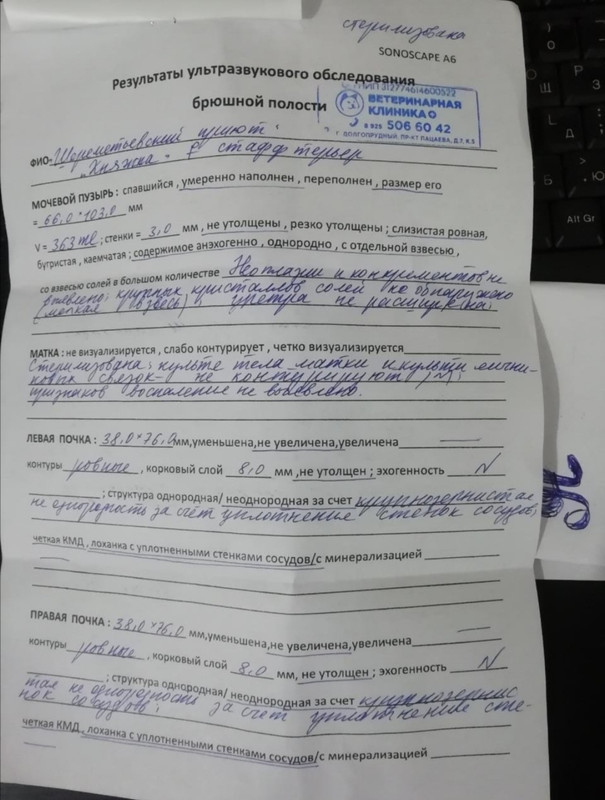 стерилизована
SONOSCAPE A6
Результаты ультразвукового обследования
брюшной полости
ОГРНИП 312774614600522
ВЕТЕРИНАРНАЯ
КЛИНИКА
8 925 506 60 42
Г. ДОЛГОПРУДНЫЙ, ПР-КТ ПАЦАЕВА, Д.7, К.5
ФИО- Шереметьевский приют
"Княжка" - F стафф терьер
МОЧЕВОЙ ПУЗЫРЬ : спавшийся , умеренно наполнен , переполнен , размер его
= 66,0*103,0 мм
V = 363 ml ; стенки = 3,0 мм , не утолщены , резко утолщены ; слизистая ровная,
бугристая , каемчатая ; содержимое анэхогенно , однородно , с отдельной взвесью ,
со взвесью солей в большом количестве Неоплазии и конкрементов не
выявлено; крупных кристаллов солей не обнаружено
(мелкая взвесь); уретра не расширена.
МАТКА : не визуализируется , слабо контурирует , четко визуализируется
Стерилизована; культе тела матки и культи яични-
ковых связок - не контурируют, (N);
признаков воспаление не выявлено.
ЛЕВАЯ ПОЧКА : 38,0*76,0 мм,уменьшена,не увеличена,увеличена
контуры ровные , корковый слой 8,0 мм ,не утолщен ; эхогенность N
; структура однородная/ неоднородная за счет крупнозернистая
не однородность за счет уплотнение стенок сосудов;
четкая КМД , лоханка с уплотненными стенками сосудов/с минерализацией
ПРАВАЯ ПОЧКА : 38,0*76,0 мм,уменьшена,не увеличена,увеличена
контуры ровные , корковый слой 8,0 мм, не утолщен ; эхогенность N
; структура однородная/ неоднородная за счет крупнозернис
тая не однородность за счет уплотнение сте-
нок сосудов;
четкая КМД, лоханка с уплотненными стенками сосудов/с минерализацией
Alt Gr